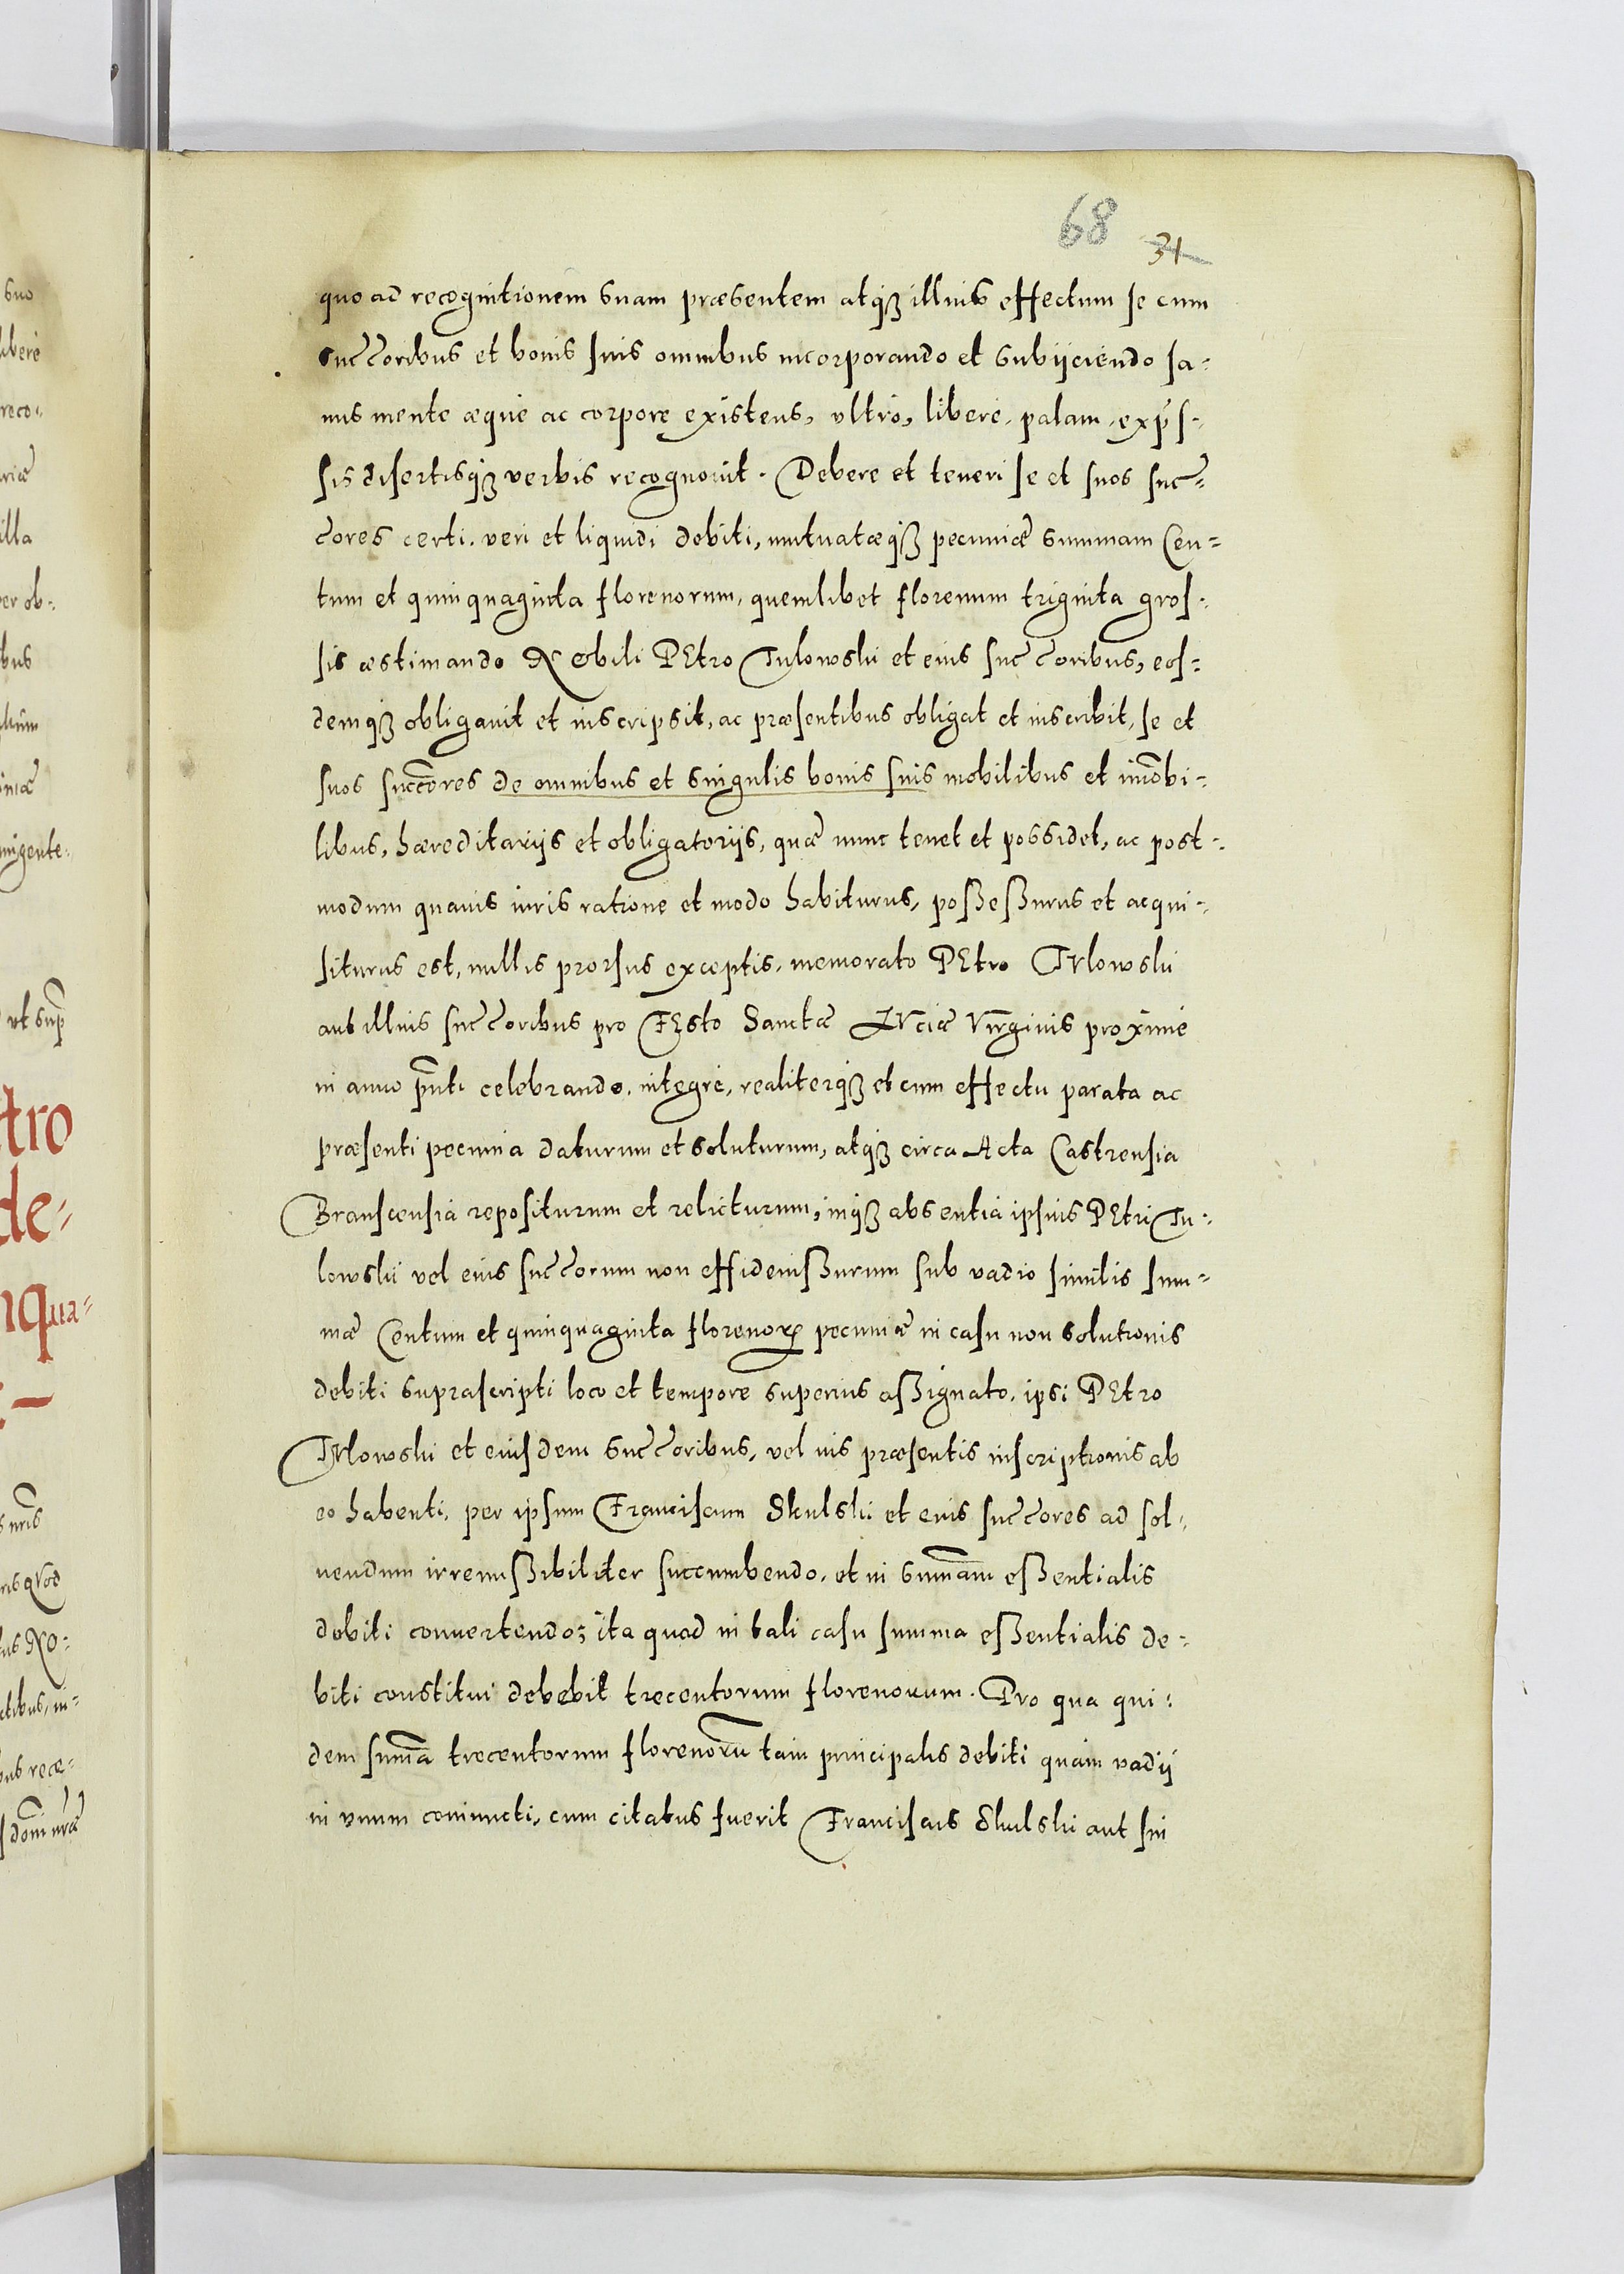 68 31
quo ad recognitionem suam præsentem atqȝ illius effectum se cum
succ̃oribus et bonis suis omnibus incorporando et subijciendo sa-
nus mente æque ac corpore existens, vltrò, liberè, palam, exp̃s-
sis disertisqȝ verbis recognouit. Debere et teneri se et suos suc̃-
c̃ores certi, veri et liquidi debiti, mutuatæqȝ pecuniæ summam Cen-
tum et quinquaginta florenorum, quemlibet florenum triginta gros-
sis æstimando Nobili PEtro Tulowski et eius succ̃oribus, eos-
demqȝ obligauit et inscripsit, ac præsentibus obligat et inscribit, se et
suos succ̃ores de omnibus et singulis bonis suis mobilibus et im̃obi-
libus, hæreditarijs et obligatorijs, quæ nunc tenet et possidet, ac post-
modum quauis iuris ratione et modo habiturus, poßeßurus et acqui-
siturus est, nullis prorsus exceptis, memorato PEtro TVlowski
aut illius succ̃oribus pro FEsto Sanctæ LVciæ Virginis proximè
in anno p̃nti celebrando, integrè, realiterqȝ et cum effectu parata ac
præsenti pecunia daturum et soluturum, atqȝ circa Acta Castrensia
Branscensia repositurum et relicturum, inqȝ absentia ipsius PEtri Tu-
lowski vel eius succ̃orum non effidemißurum sub vadio similis sum-
mæ Centum et quinquaginta florenorꝝ pecuniæ in casu non solutionis
debiti suprascripti loco et tempore superius aßignato, ipsi PEtro
TVlowski et eiusdem succ̃oribus, vel ius præsentis inscriptionis ab
eo habenti, per ipsum Franciscum Skulski et eius succ̃ores ad sol-
uendum irremißibiliter succumbendo, et in sum̃am eßentialis
debiti conuertendo; ita quod in tali casu summa eßentialis de-
biti constitui debebit trecentorum florenorum. Pro qua qui-
dem sum̃a trecentorum florenorũ tam principalis debiti quàm vadij
in vnum coniuncti, cum citatus fuerit Franciscus Skulski aut sui